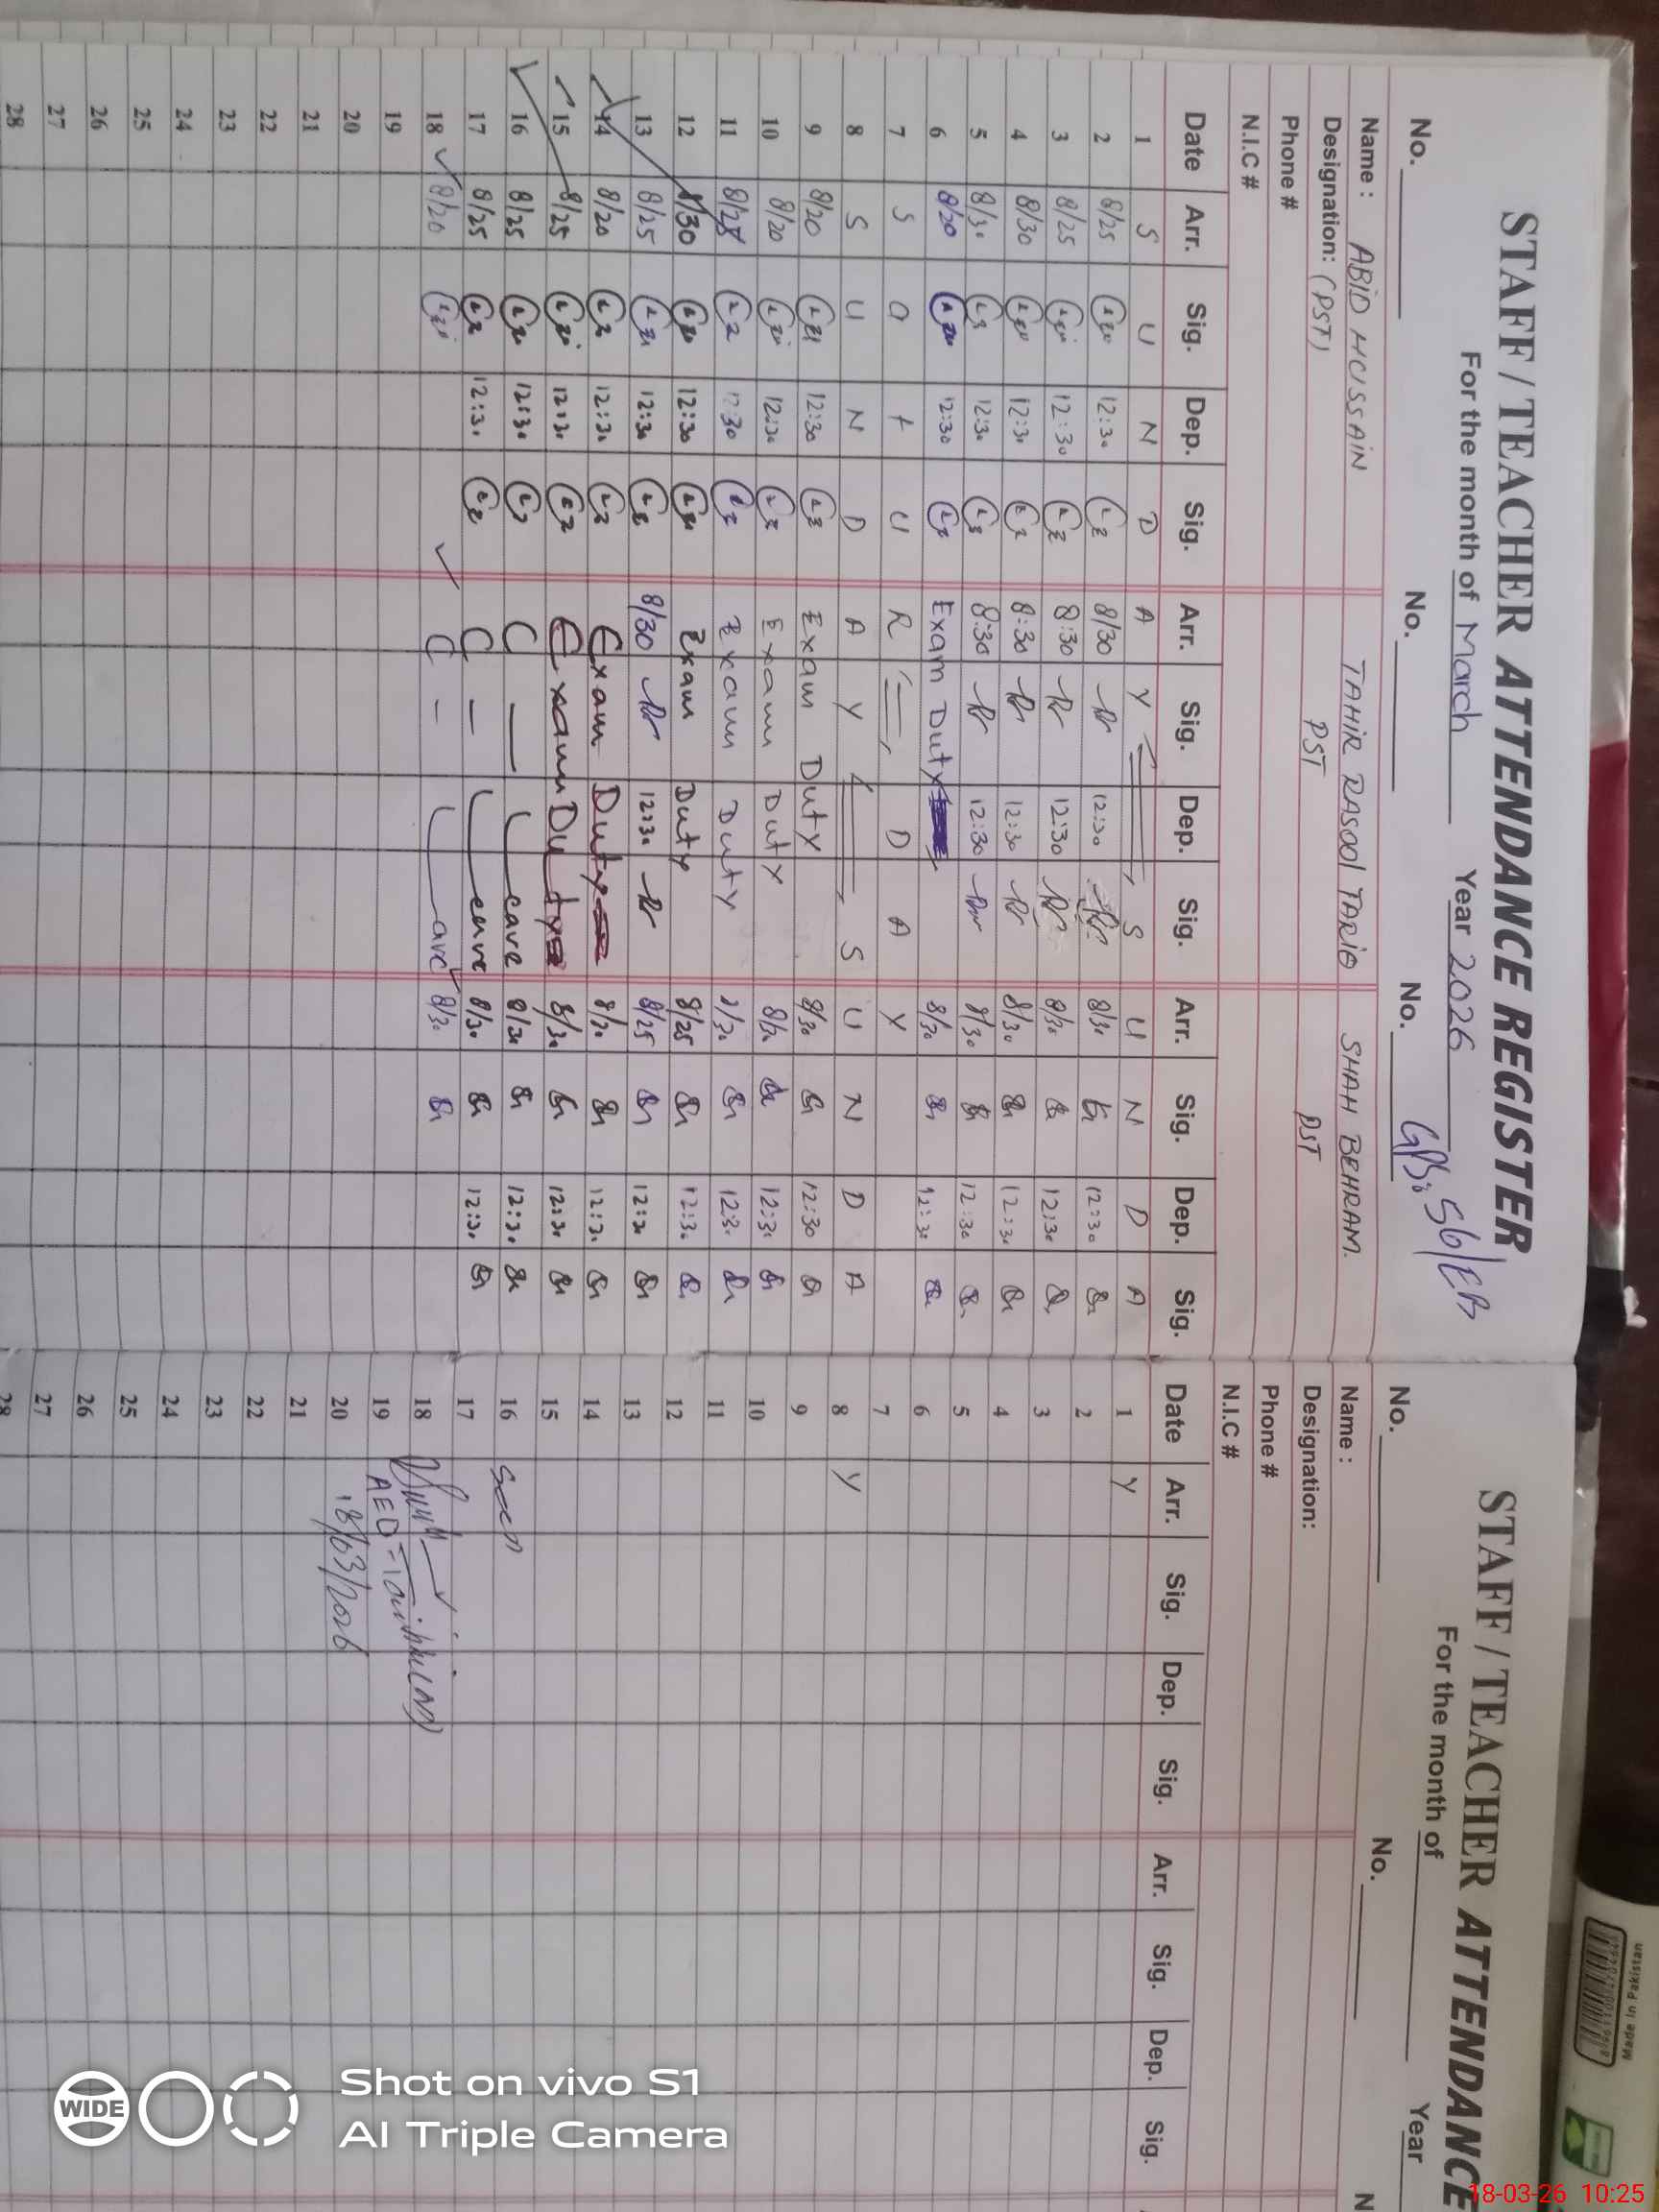 STAFF / TEACHER ATTENDANCE REGISTER
For the month of March Year 2026
No. No. No.
Name : ABID HUSSAIN TAHIR RASOOL TARIQ SHAH BEHRAM.
Designation: (PST) PST PST
Phone #
N.I.C #
Date Arr. Sig. Dep. Sig. Arr. Sig. Dep. Sig. Arr. Sig. Dep. Sig.
1 S U N D A Y S U N D A
2 8/25 12:30 8/30 12:30 8/30 12:30
3 8/25 12:30 8:30 12:30 8/30 12:30
4 8/30 12:30 8:30 12:30 8/30 12:30
5 8/30 12:30 8:30 12:30 8/30 12:30
6 8/20 12:30 Exam Duty 8/30 12:30
7 S A T U R D A Y
8 S U N D A Y S U N D A
9 8/20 12:30 Exam Duty 8/30 12:30
10 8/20 12:30 Exam Duty 8/30 12:30
11 8/25 12:30 Exam Duty 12:30
12 8/30 12:30 Exam Duty 8/25 12:30
13 8/25 12:30 8/30 12:30 8/25 12:30
14 8/20 12:30 Exam Duty 8/30 12:30
15 8/25 12:30 Exam Duty 8/30 12:30
16 8/25 12:30 C — Leave 8/30 12:30
17 8/25 12:30 C — Leave 8/30 12:30
18 8/20 C — 8/30
19
20
21
22
23
24
25
26
27
28
STAFF / TEACHER ATTENDANCE
For the month of Year
No. No.
Name : N
Designation:
Phone #
N.I.C #
Date Arr. Sig. Dep. Sig. Arr. Sig. Dep. Sig.
1 Y
2
3
4
5
6
7
8 Y
9
10
11
12
13
14
15
16 Seen
17
18
19 AED
20 18/03/2026
21
22
23
24
25
26
27
28
Made in Pakistan
WIDE
Shot on vivo S1
AI Triple Camera
18-03-26 10:25